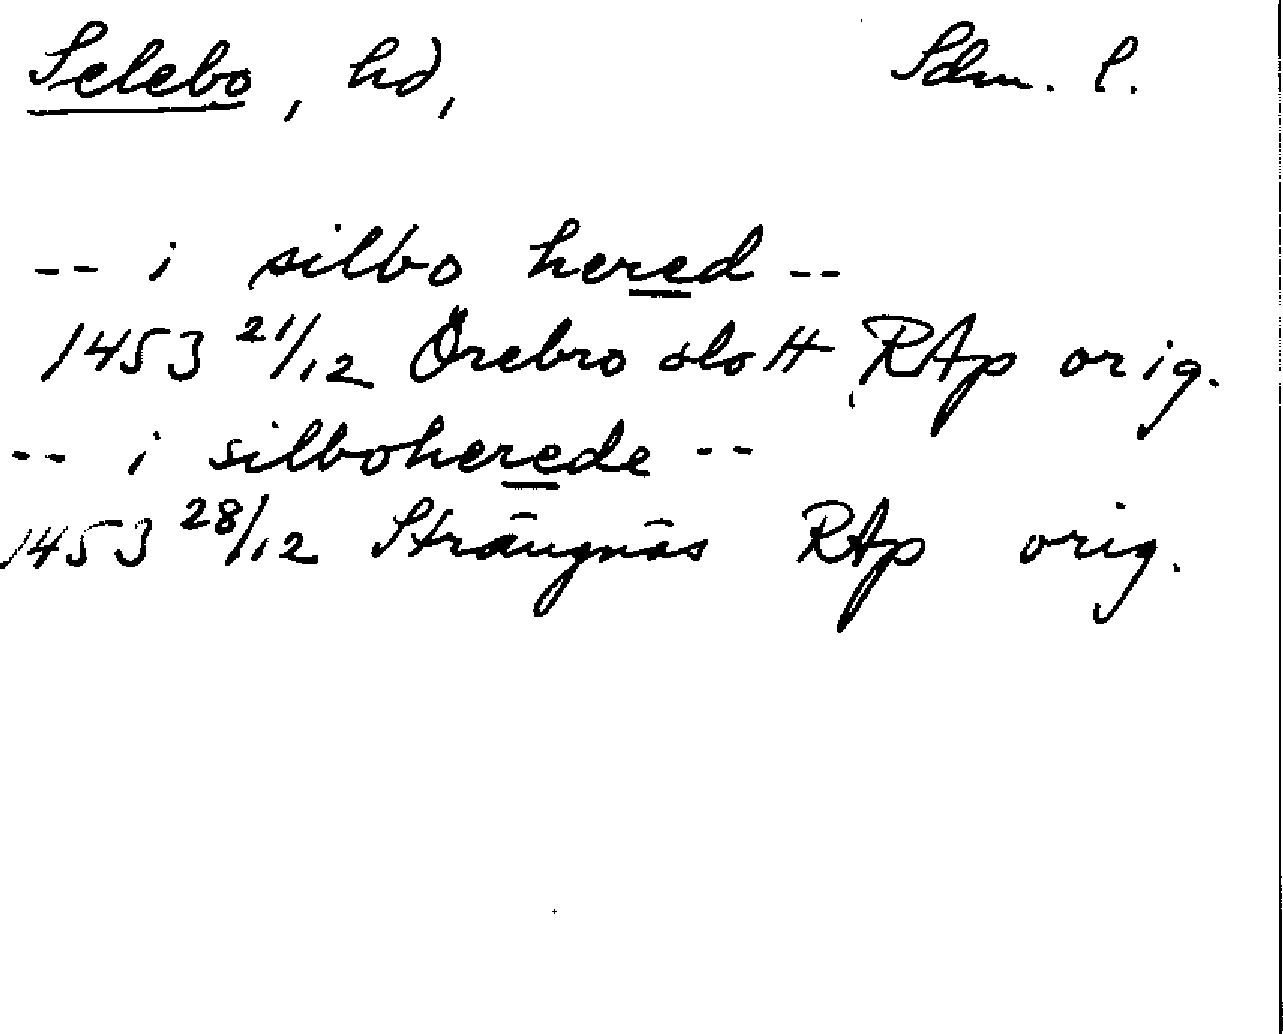 Selebo, hd, Sdm. l.
-- i silbo hered --
1453 21/12 Örebro slott RAp orig.
-- i silboherede --
1453 28/12 Strängnäs RAp orig.